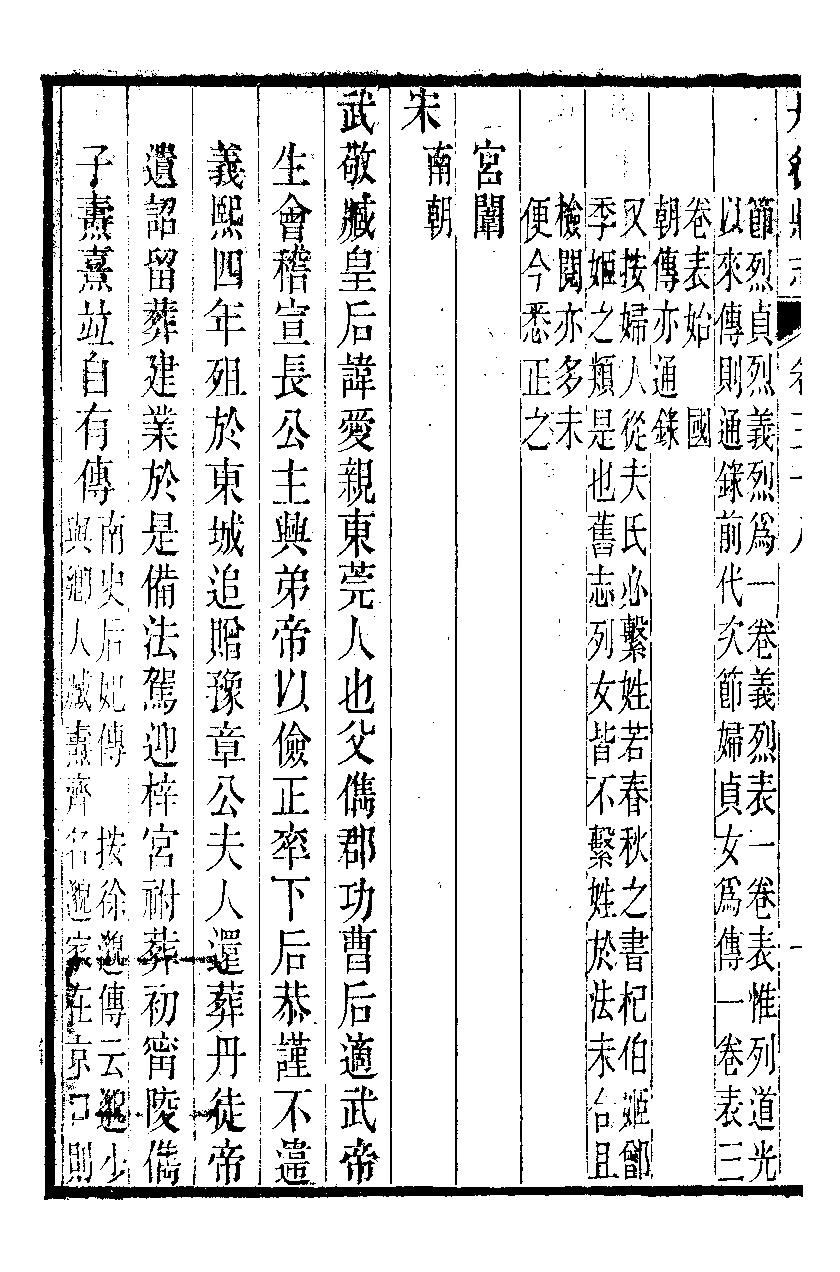 節烈貞烈義烈爲一卷義烈表一卷表惟列道光
以來傳則通錄前代次節婦貞女爲傳一卷表三
卷表始 國
朝傳亦通錄
又按婦人從夫氏必繫姓若春秋之書杞伯姬鄫
季姬之類是也舊志列女皆不繫姓於法未合且
檢閱亦多未
便今悉正之
宮闈
宋南朝
武敬臧皇后諱愛親東莞人也父儁郡功曹后適武帝
生會稽宣長公主興弟帝以儉正率下后恭謹不違
義熙四年殂於東城追贈豫章公夫人還葬丹徒帝
遺詔留葬建業於是備法駕迎梓宮祔葬初甯陵儁
子燾熹竝自有傳
南史后妃傳 按徐邈傳云邈少
與鄉人臧燾齊名邈家在京口則